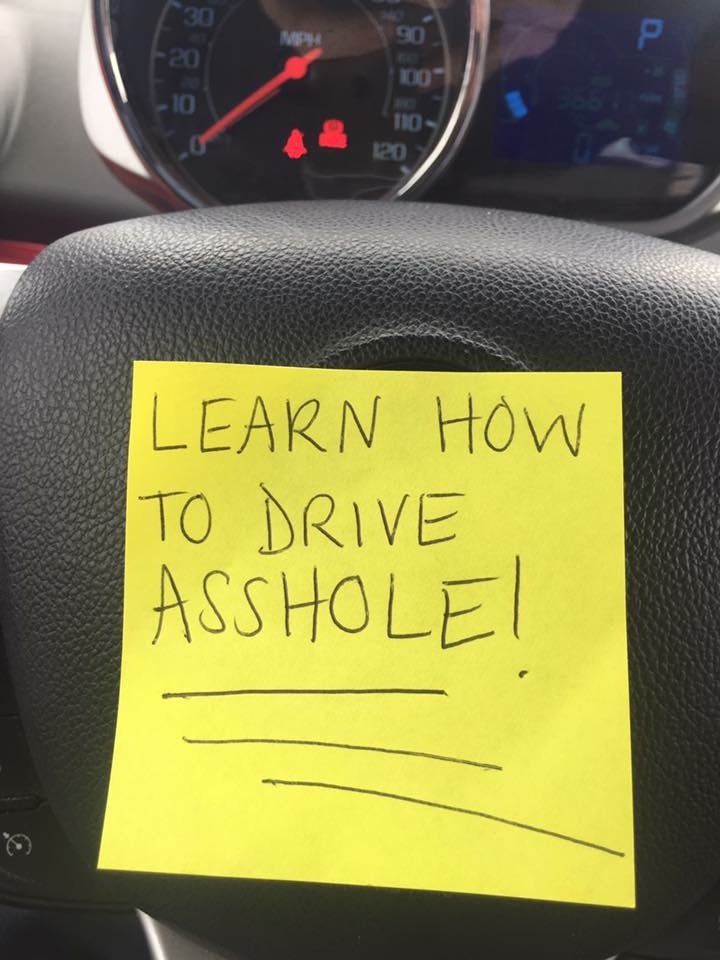 30
MPH
90
20
100
10
110
0
120
P
LEARN HOW
TO DRIVE
ASSHOLE!